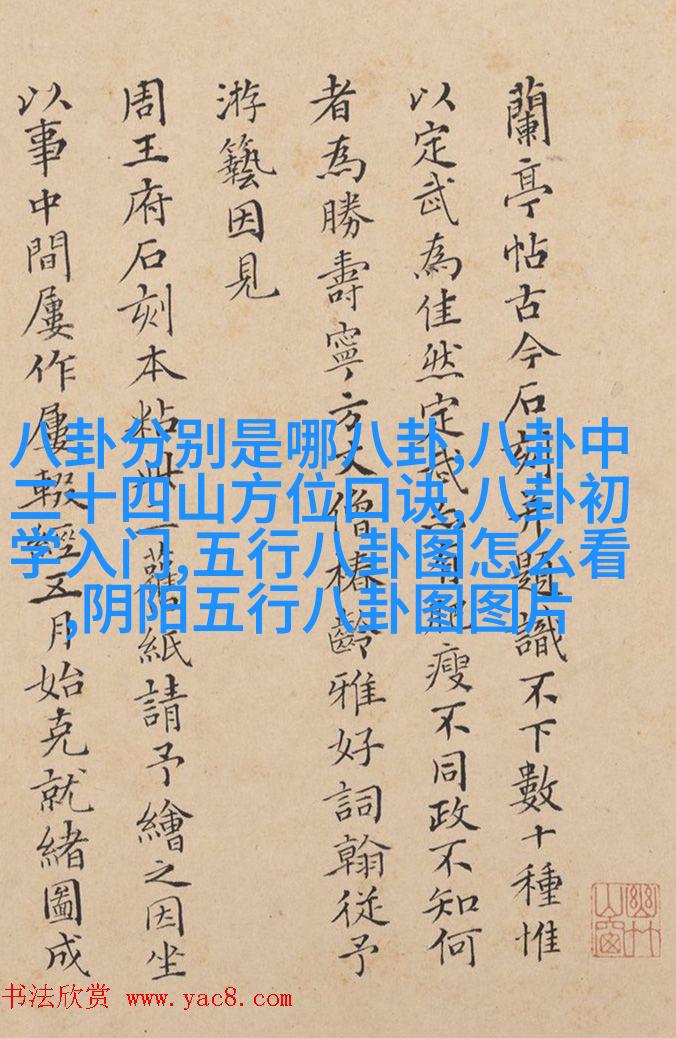 蘭亭帖古今石刻并題識不下數十種惟
以定武為佳然定武有肥瘦不同政不知何
者為勝壽寧方丈僧椿齡雅好詞翰從予
游藝因見
周王府石刻本粘此一舊紙請予繪之因坐
以事中間屢作屢輟經五月始克就緒圖成
幽竹
山窗
八卦分别是哪八卦,八卦中
二十四山方位口诀,八卦初
学入门,五行八卦图怎么看
,阴阳五行八卦图图片
书法欣赏 www.yac8.com